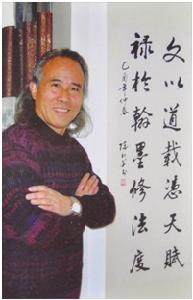 文以道載憑天賦
禄於翰墨修法度
乙酉年仲春